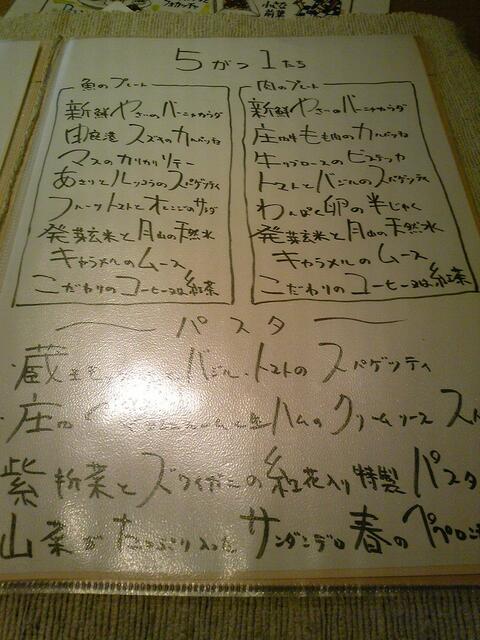 5がつ1たち
魚のプレート
新鮮やさいのバーニャカウダ
由良港 スズキのカルパッチョ
マスのカリカリソテー
あさりとルッコラのスパゲッティ
フルーツトマトとオレンジのサラダ
発芽玄米と月山の天然水
キャラメルのムース
こだわりのコーヒー又は紅茶
肉のプレート
新鮮やさいのバーニャカウダ
庄内牛もも肉のカルパッチョ
牛リブロースのビステッカ
トマトとバジルのスパゲッティ
わんぱく卵の半じゅく
発芽玄米と月山の天然水
キャラメルのムース
こだわりのコーヒー又は紅茶
パスタ
蔵王 バジル・トマトの スパゲッティ
庄内 生ハムの クリームソース ス
紫折菜とズワイガニの紅花入り特製 パスタ
山菜がたっぷり入った サンダンデロ 春の ペペロン